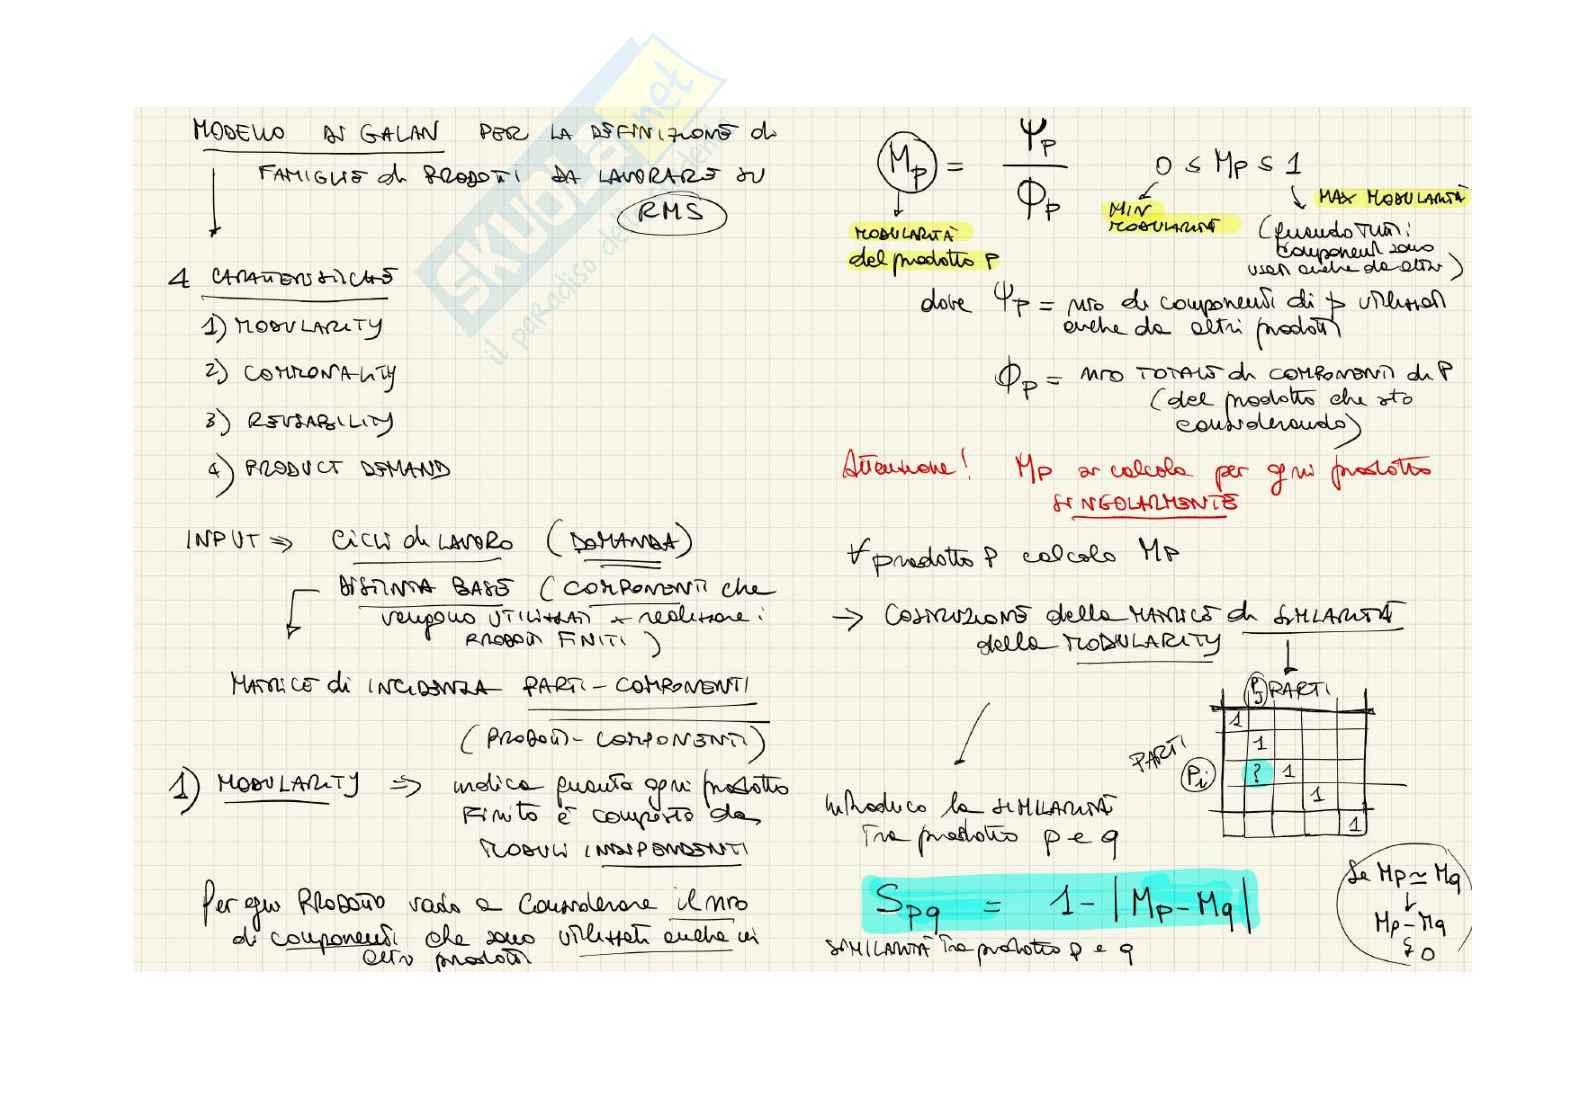 MODELLO di GALAN PER LA DEFINIZIONE di
FAMIGLIE di PRODOTTI DA LAVORARE SU
RMS
4 CARATTERISTICHE
1) MODULARITY
2) COMMONALITY
3) REUSABILITY
4) PRODUCT DEMAND
INPUT => CICLI di LAVORO (DOMANDA)
DISTINTA BASE (COMPONENTI che
vengono UTILIZZATI x realizzare i
PRODOTTI FINITI)
MATRICE di INCIDENZA PARTI-COMPONENTI
(PRODOTTI-COMPONENTI)
1) MODULARITY => indica quanto ogni prodotto
FINITO è composto da
MODULI INDIPENDENTI
Per ogni PRODOTTO vado a considerare il nro
di componenti che sono utilizzati anche in
altri prodotti
Mp = Ψp / Φp 0 ≤ Mp ≤ 1
MODULARITÀ
del prodotto P
MIN
MODULARITÀ
MAX MODULARITÀ
(quando TUTTI i
componenti sono
usati anche da altri)
dove Ψp = nro di componenti di p utilizzati
anche da altri prodotti
Φp = nro TOTALE di COMPONENTI di P
(del prodotto che sto
considerando)
Attenzione! Mp si calcola per ogni prodotto
SINGOLARMENTE
∀ prodotto P calcolo Mp
-> COSTRUZIONE della MATRICE di SIMILARITÀ
della MODULARITY
Pj PARTI
PARTI
Pi
1
1
? 1
1
1
introduco la SIMILARITÀ
Tra prodotto p e q
Spq = 1 - |Mp - Mq|
SIMILARITÀ Tra prodotto p e q
Se Mp ≃ Mq
↓
Mp - Mq
0
SKUOLA.net
il paradiso dello studente